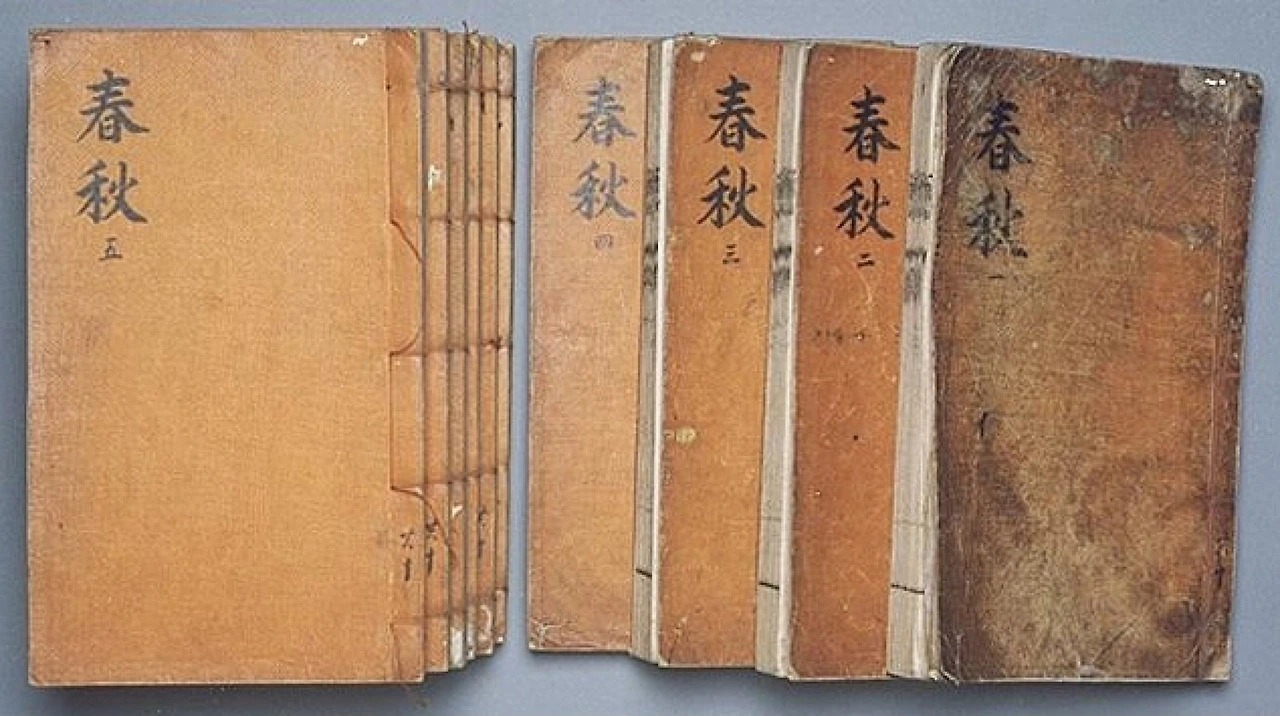 春秋
一
春秋
二
春秋
三
春秋
四
春秋
五